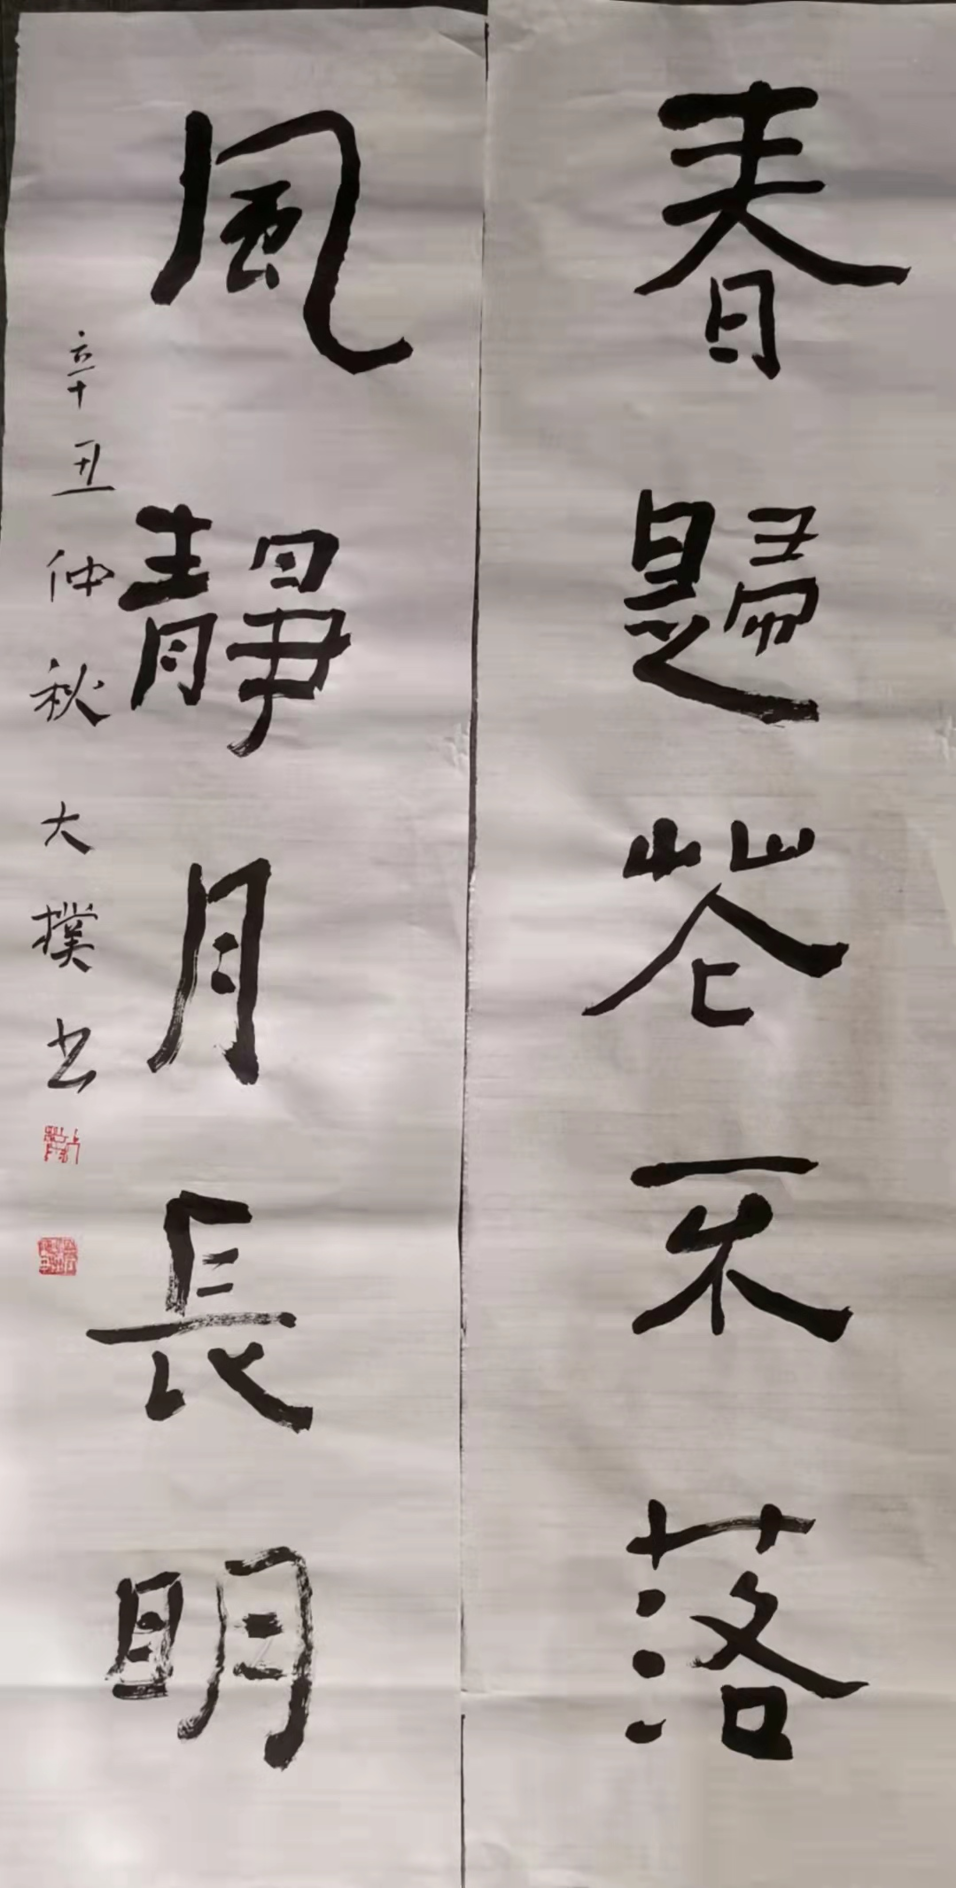 春歸花不落
風靜月長明
辛丑仲秋大樸书